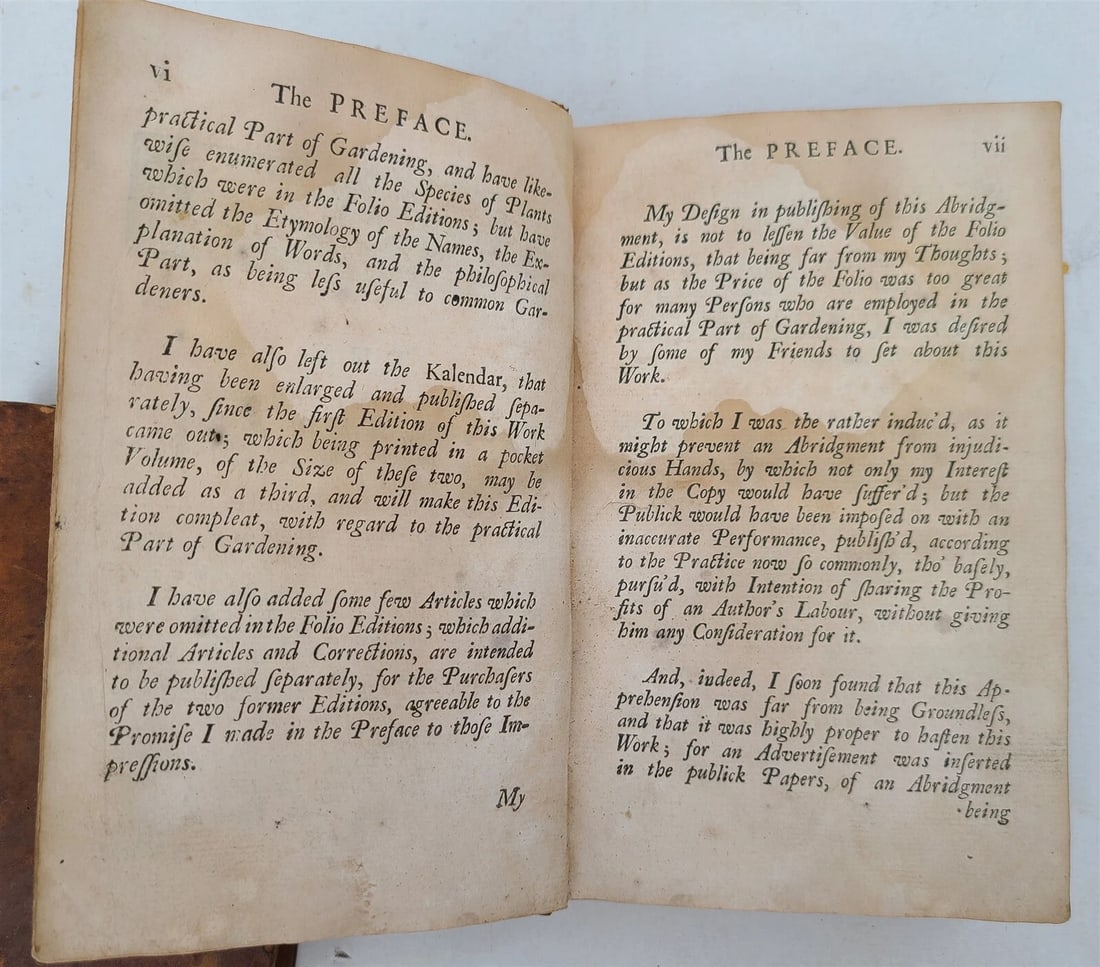 vi
The PREFACE.
practical Part of Gardening, and have like-
wiſe enumerated all the Species of Plants
which were in the Folio Editions; but have
omitted the Etymology of the Names, the Ex-
planation of Words, and the philoſophical
Part, as being leſs uſeful to common Gar-
deners.
I have alſo left out the Kalendar, that
having been enlarged and publiſhed ſepa-
rately, ſince the firſt Edition of this Work
came out; which being printed in a pocket
Volume, of the Size of theſe two, may be
added as a third, and will make this Edi-
tion compleat, with regard to the practical
Part of Gardening.
I have alſo added ſome few Articles which
were omitted in the Folio Editions; which addi-
tional Articles and Corrections, are intended
to be publiſhed ſeparately, for the Purchaſers
of the two former Editions, agreeable to the
Promiſe I made in the Preface to thoſe Im-
preſſions.
My
The PREFACE.
vii
My Deſign in publiſhing of this Abridg-
ment, is not to leſſen the Value of the Folio
Editions, that being far from my Thoughts;
but as the Price of the Folio was too great
for many Perſons who are employed in the
practical Part of Gardening, I was deſired
by ſome of my Friends to ſet about this
Work.
To which I was the rather induc'd, as it
might prevent an Abridgment from injudi-
cious Hands, by which not only my Intereſt
in the Copy would have ſuffer'd; but the
Publick would have been impoſed on with an
inaccurate Performance, publiſh'd, according
to the Practice now ſo commonly, tho' baſely,
purſu'd, with Intention of ſharing the Pro-
fits of an Author's Labour, without giving
him any Conſideration for it.
And, indeed, I ſoon found that this Ap-
prehenſion was far from being Groundleſs,
and that it was highly proper to haſten this
Work; for an Advertiſement was inſerted
in the publick Papers, of an Abridgment
being